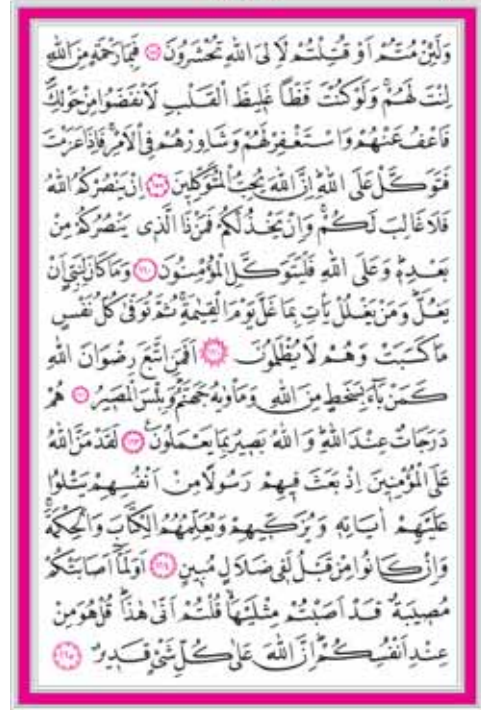 وَلَئِنْ مُتُّمْ اَوْ قُتِلْتُمْ لَاِلَى اللّٰهِ تُحْشَرُونَ ﴿١٥٨﴾ فَبِمَا رَحْمَةٍ مِنَ اللّٰهِ
لِنْتَ لَهُمْۚ وَلَوْ كُنْتَ فَظًّا غَلِيظَ الْقَلْبِ لَانْفَضُّوا مِنْ حَوْلِكَۖ
فَاعْفُ عَنْهُمْ وَاسْتَغْفِرْ لَهُمْ وَشَاوِرْهُمْ فِي الْاَمْرِۚ فَاِذَا عَزَمْتَ
فَتَوَكَّلْ عَلَى اللّٰهِۜ اِنَّ اللّٰهَ يُحِبُّ الْمُتَوَكِّلِينَ ﴿١٥٩﴾ اِنْ يَنْصُرْكُمُ اللّٰهُ
فَلَا غَالِبَ لَكُمْۚ وَاِنْ يَخْذُلْكُمْ فَمَنْ ذَا الَّذِي يَنْصُرُكُمْ مِنْ
بَعْدِهِۜ وَعَلَى اللّٰهِ فَلْيَتَوَكَّلِ الْمُؤْمِنُونَ ﴿١٦٠﴾ وَمَا كَانَ لِنَبِيٍّ اَنْ
يَغُلَّۜ وَمَنْ يَغْلُلْ يَأْتِ بِمَا غَلَّ يَوْمَ الْقِيٰمَةِۚ ثُمَّ تُوَفّٰى كُلُّ نَفْسٍ
مَا كَسَبَتْ وَهُمْ لَا يُظْلَمُونَ ﴿١٦١﴾ اَفَمَنِ اتَّبَعَ رِضْوَانَ اللّٰهِ
كَمَنْ بَٓاءَ بِسَخَطٍ مِنَ اللّٰهِ وَمَأْوٰيهُ جَهَنَّمُۜ وَبِئْسَ الْمَصِيرُ ﴿١٦٢﴾ هُمْ
دَرَجَاتٌ عِنْدَ اللّٰهِۜ وَاللّٰهُ بَصِيرٌ بِمَا يَعْمَلُونَ ﴿١٦٣﴾ لَقَدْ مَنَّ اللّٰهُ
عَلَى الْمُؤْمِنِينَ اِذْ بَعَثَ فِيهِمْ رَسُولًا مِنْ اَنْفُسِهِمْ يَتْلُوا
عَلَيْهِمْ اٰيَاتِهِ وَيُزَكِّيهِمْ وَيُعَلِّمُهُمُ الْكِتَابَ وَالْحِكْمَةَۚ
وَاِنْ كَانُوا مِنْ قَبْلُ لَفِي ضَلَالٍ مُبِينٍ ﴿١٦٤﴾ اَوَلَمَّٓا اَصَابَتْكُمْ
مُصِيبَةٌ قَدْ اَصَبْتُمْ مِثْلَيْهَاۙ قُلْتُمْ اَنّٰى هٰذَاۜ قُلْ هُوَ مِنْ
عِنْدِ اَنْفُسِكُمْۜ اِنَّ اللّٰهَ عَلٰى كُلِّ شَيْءٍ قَدِيرٌ ﴿١٦٥﴾